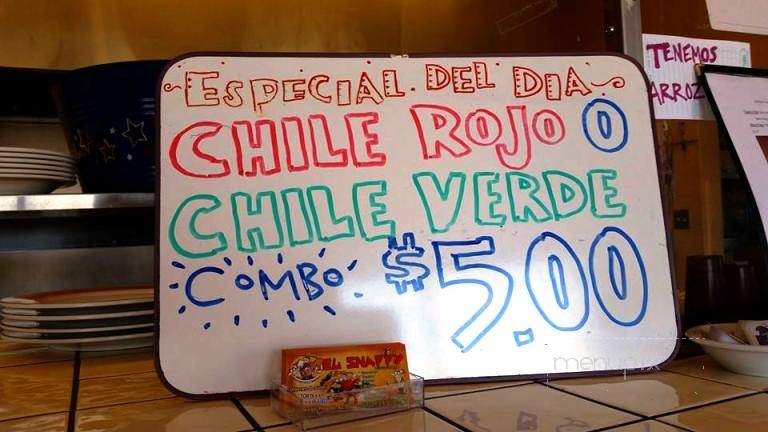 ESPECIAL DEL DIA
CHILE ROJO O
CHILE VERDE
COMBO $5.00
TENEMOS
ARROZ
EL SNAPPY